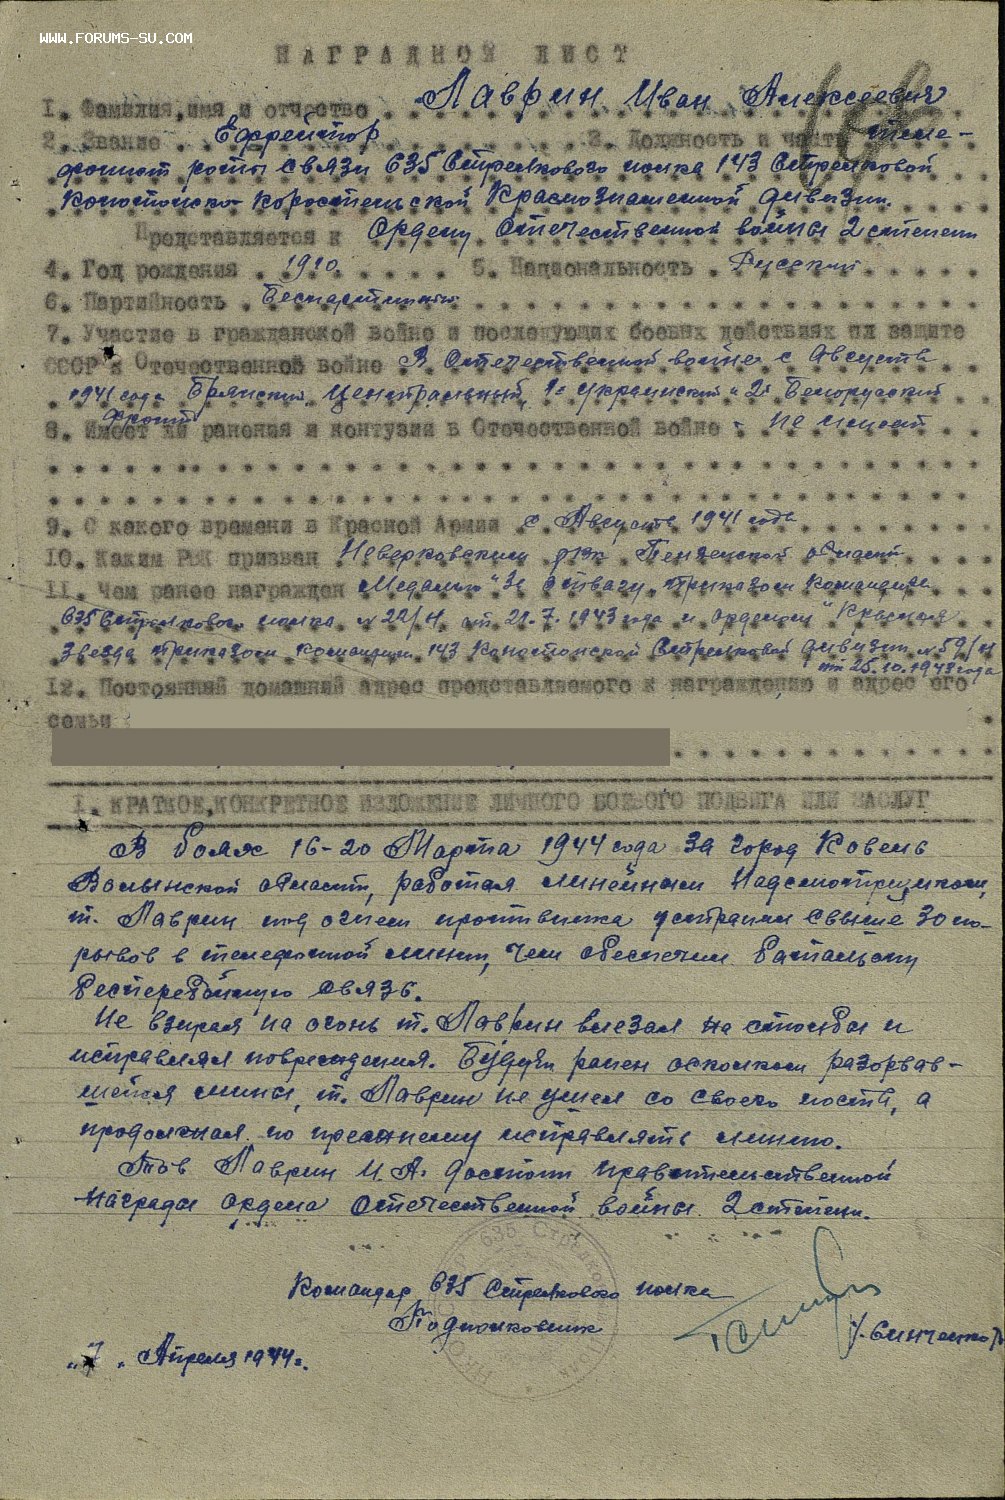 WWW.FORUMS-SU.COM
НАГРАДНОЙ ЛИСТ
1. Фамилия, имя и отчество Лаврин Иван Алексеевич
2. Звание Ефрейтор 3. Должность и часть теле-
фонист роты связи 635 Стрелкового полка 143 Стрелковой
Конотопско-Коростеньской Краснознаменной дивизии.
Представляется к Ордену Отечественной войны 2 степени
4. Год рождения 1910 5. Национальность Русский
6. Партийность Беспартийный
7. Участие в гражданской войне и последующих боевых действиях пл защите
СССР и Отечественной войне В Отечественной войне с Августа
1941 года Брянский, Центральный, 1й Украинский и 2й Белорусский
фронт
8. Имеет ли ранения и контузии в Отечественной войне - не имеет
9. С какого времени в Красной Армии с Августа 1941 года
10. Каким РВК призван Неверковским рвк Пензенской области
11. Чем ранее награжден Медалью "За отвагу" приказом командира
635 Стрелкового полка № 22/н от 21.7.1943 года и орденом "Красная
Звезда приказом командира 143 Конотопской Стрелковой дивизии № 59/н
от 25.10.1943 года
12. Постоянный домашний адрес представляемого к награждению и адрес его
семьи
1. КРАТКОЕ, КОНКРЕТНОЕ ИЗЛОЖЕНИЕ ЛИЧНОГО БОЕВОГО ПОДВИГА ИЛИ ЗАСЛУГ
В боях 16-20 Марта 1944 года за город Ковель
Волынской области, работая линейным надсмотрщиком,
т. Лаврин под огнем противника устранил свыше 30 по-
рывов в телефонной линии, чем обеспечил батальону
бесперебойную связь.
Не взирая на огонь т. Лаврин влезал на столбы и
исправлял повреждения. Будучи ранен осколком разорвав-
шейся мины, т. Лаврин не ушел со своего поста, а
продолжал по прежнему исправлять линию.
Тов Лаврин И.А. достоин правительственной
награды ордена Отечественной войны 2 степени.
Командир 635 Стрелкового полка
Подполковник
"7" Апреля 1944 г.